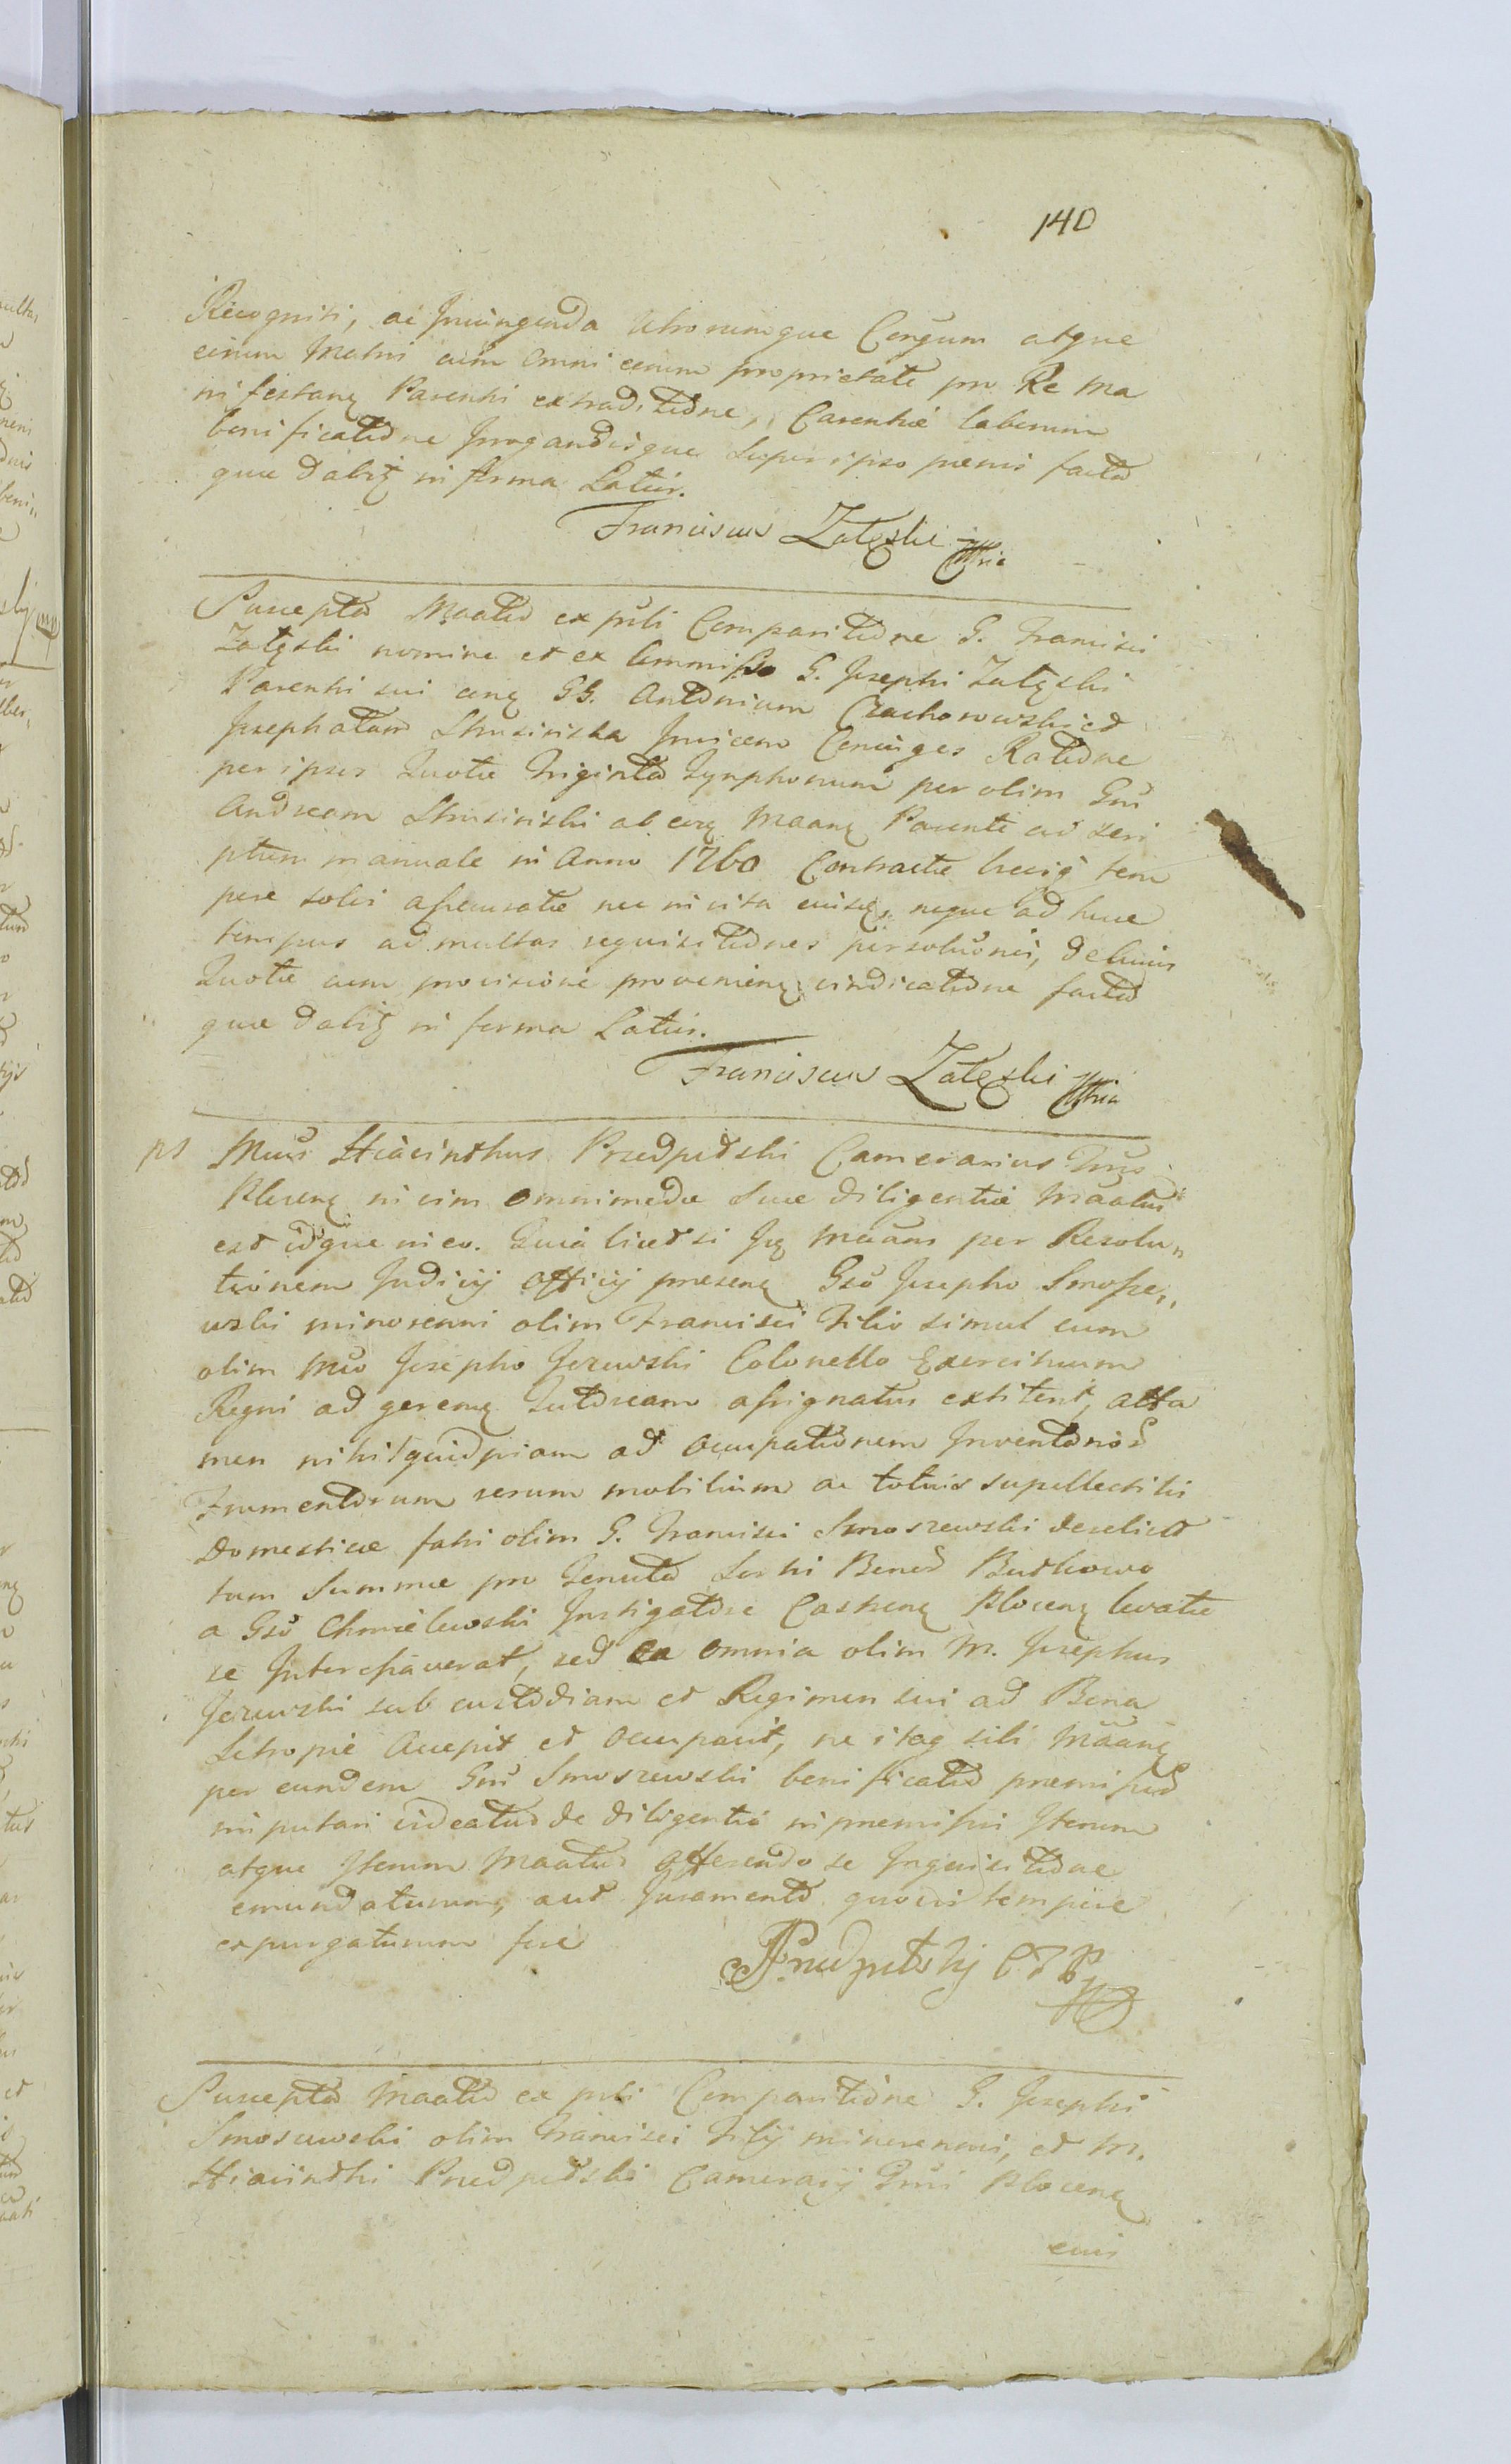 140
Recogniti, ac Iniungenda Utrorumque Corgum atque
eorum Matri cum omni eorum proprietate pro Re Ma
nifestanẹ Parenti extraditione, Carentiæ laborum
bonificatione Irrogandisque superipso pænis facta
quæ dabiṫ in forma Latiùs.
Franciscus Załęski mp̄ria
Suscepta Maatio ex pŕsti Comparitione G. Francisci
Załęski nomine et ex Commisso G. Josephi Załęski
Parenti sui conẹ GG. Antonium Czachorowski et
Josephatam Strusińska Invicem Coniuges Ratione
per ipsos Quotæ Triginta Tynphonum per olim Gnũ
Andream Strusiński ab eoẹ Maanẹ Parente ad scri
ptum manuale in Anno 1760 Contractæ brevig̀ tem
pore solvi assecuratæ nec in vita eiusẹ, neque ad huc
tempus ad multas requisitiones persolũonis, de huius
Quotæ cum provisione proveniene vindicatione facta
quæ dabiṫ in forma Latiùs.
Franciscus Załęski mp̄ria
ps Mũs Hiacinthus Przedpełski Camerarius Trũs
Plocenẹ in vim omnimodæ suæ diligentiæ Maatus
est idque in eo. Quia licet si Iꝗ Maans per Resolu„
tionem Judicij Officij præsenẹ Gsõ Josepho Smosze„
wski minorenni olim Francisci Filio simul cum
olim Mĩo Josepho Jezewski Colonello Exercituum
Regni ad gerenẹ Tutoream assignatus extiterit, atta
men nihil quidpiam ad occupationem Inventarios
Frumentorum rerum mobilium ac totius supellectilis
Domesticæ fati olim G. Francisci Smoszewski derelict
tum Summæ pro Tenuta Sorti Bonoꝝ Butkowo
a Gsõ Chmielewski Instigatore Castrenẹ Plocenẹ levatæ
se Interessaverat, sed ea omnia olim M. Josephus
Jezewski sub custodiam et Regimen sui ad Bona
Setropie Accepit et Occupavit, ne itaq sibi Maanẹ
per eundem Gnũ Smoszewski bonificatio præmissoꝝ
imputari videatur de diligentia in præmissis Iterum
atque Iterum Maatus offerendo se Inquisitione
emundaturum, aut Juramento quovis tempore
expurgaturum fore
HPrzedpełskj C Z P mp
Suscepta Maatio ex pŕsti Comparitione G. Josephi
Smoszewski olim Francisci Filij minorenni, et M.
Hiacinthi Przedpełski Camerarij Trũs Plocenẹ
eius